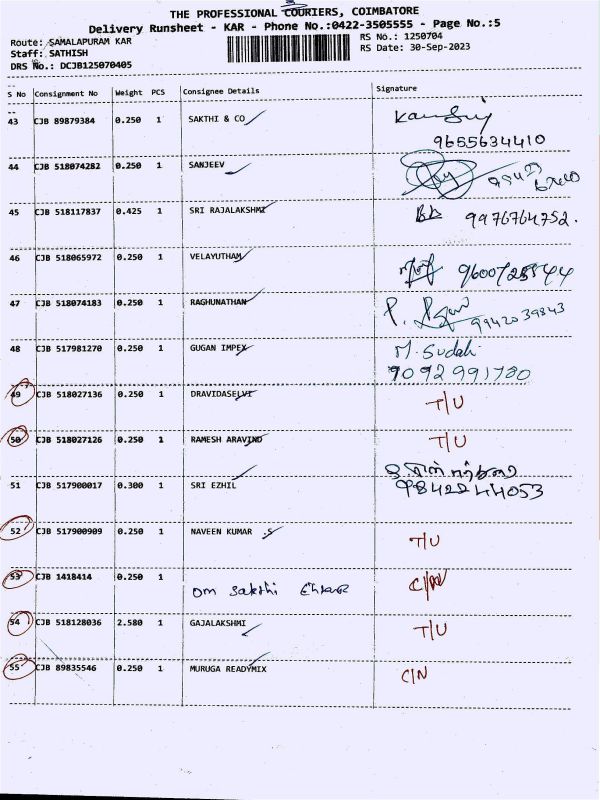 THE PROFESSIONAL COURIERS, COIMBATORE
Delivery Runsheet - KAR - Phone No.:0422-3505555 - Page No.:5
Route: SAMALAPURAM KAR
RS No.: 1250704
Staff: SATHISH
RS Date: 30-Sep-2023
DRS No.: DCJB125070405
S No Consignment No Weight PCS Consignee Details Signature
43 CJB 89879384 0.250 1 SAKTHI & CO
9655634410
44 CJB 518074282 0.250 1 SANJEEV
45 CJB 518117837 0.425 1 SRI RAJALAKSHMI 9976764752.
46 CJB 518065972 0.250 1 VELAYUTHAM
47 CJB 518074183 0.250 1 RAGHUNATHAN
9942039843
48 CJB 517981270 0.250 1 GUGAN IMPEX M. Sudali
9092991780
49 CJB 518027136 0.250 1 DRAVIDASELVI T/U
50 CJB 518027126 0.250 1 RAMESH ARAVIND T/U
51 CJB 517900017 0.300 1 SRI EZHIL
9842244053
52 CJB 517900909 0.250 1 NAVEEN KUMAR .S T/U
53 CJB 1418414 0.250 1 C/N
Om Sakthi
54 CJB 518128036 2.580 1 GAJALAKSHMI T/U
55 CJB 89835546 0.250 1 MURUGA READYMIX C/N